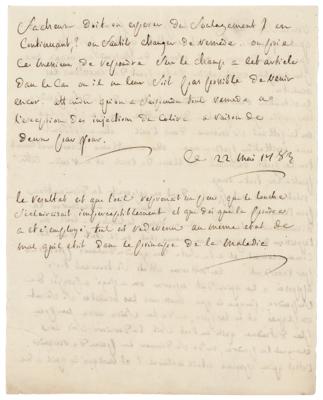 doit on esperer du soulagement) en
Continuant? ou faut il changer de remede. on prie
ces messieurs de repondre sur le champ a cet article
dans le Cas ou il ne leur soit pas possible de venir
encor. attendu qu'on a suspendu tout remede a
l'exception des injection de a raison de
deux par jour.
Ce 22 mai 1783
le resultat est que l'oeil reprenoit un peu que la tache
s'eclaircissoit imperceptiblement et que dès que la poudre
a eté employé, tout est redevenu au meme etat de
mal qu'il etoit dans le principe de la maladie